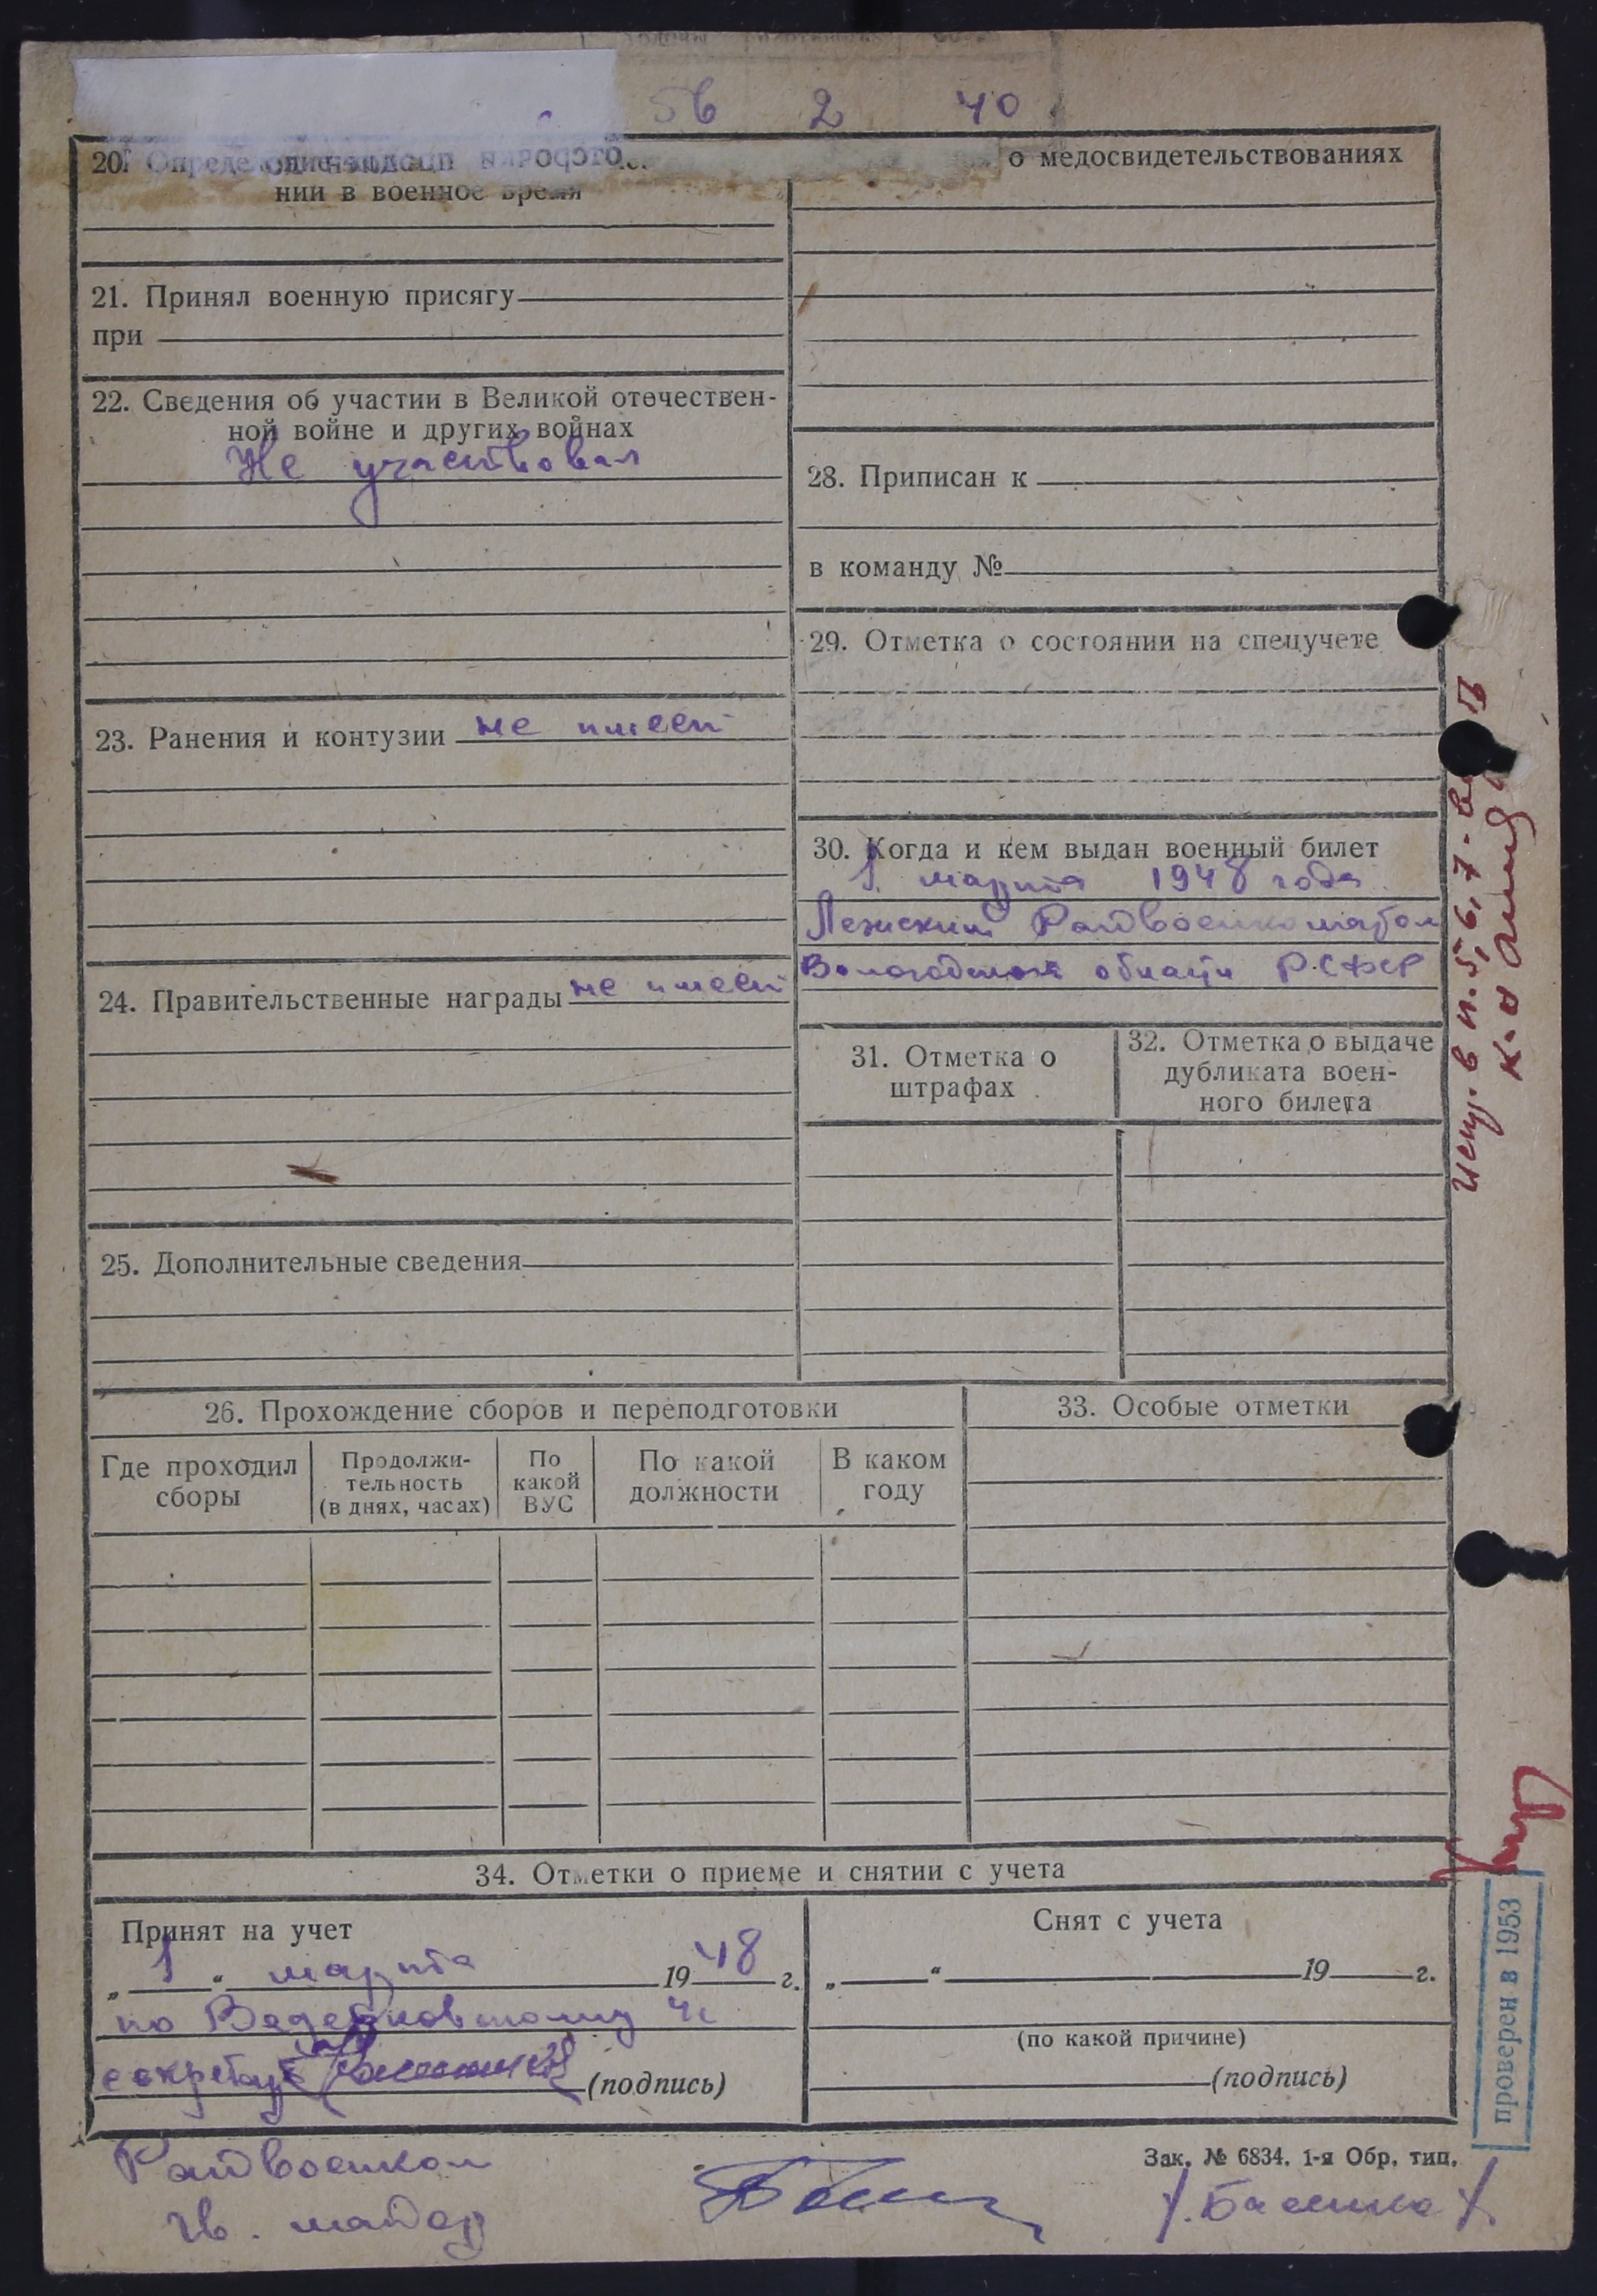 56 2 40
20.
нии в военное время
21. Принял военную присягу
при
22. Сведения об участии в Великой отечествен-
ной войне и других войнах
Не участвовал
23. Ранения и контузии не имеет
24. Правительственные награды не имеет
25. Дополнительные сведения
о медосвидетельствованиях
28. Приписан к
в команду №
29. Отметка о состоянии на спецучете
30. Когда и кем выдан военный билет
1 марта 1948 года
Лежским Райвоенкоматом
Вологодской области РСФСР
31. Отметка о
штрафах
32. Отметка о выдаче
дубликата воен-
ного билета
26. Прохождение сборов и переподготовки
Где проходил
сборы
Продолжи-
тельность
(в днях, часах)
По
какой
ВУС
По какой
должности
В каком
году
33. Особые отметки
34. Отметки о приеме и снятии с учета
Принят на учет
„ 1 “ марта 1948 г.
по
(подпись)
Снят с учета
„ “ 19 г.
(по какой причине)
(подпись)
Зак. № 6834. 1-я Обр. тип.
Райвоенком
гв. майор
испр. в п. 5, 6, 7
проверен в 1953